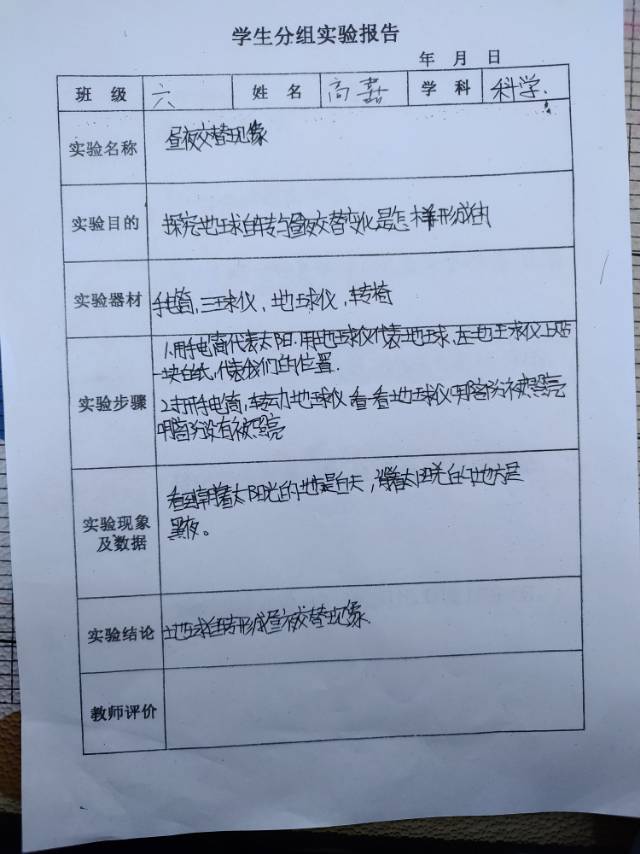 学生分组实验报告
年 月 日
班 级 六 姓 名 高 学 科 科学.
实验名称 昼夜交替现像
实验目的 探究地球自转与昼夜交替变化是怎样形成的
实验器材 手电筒,三球仪,地球仪,转椅
实验步骤 1.用手电筒代表太阳.用地球仪代表地球,在地球仪上贴
一块白纸,代表我们的位置.
2.打开手电筒,转动地球仪看一看地球仪哪部分被照亮
哪部分没有被照亮
实验现象及数据 看到朝着太阳光的地是白天,背着太阳光的地方是
黑夜。
实验结论 地球自转形成昼夜交替现像
教师评价